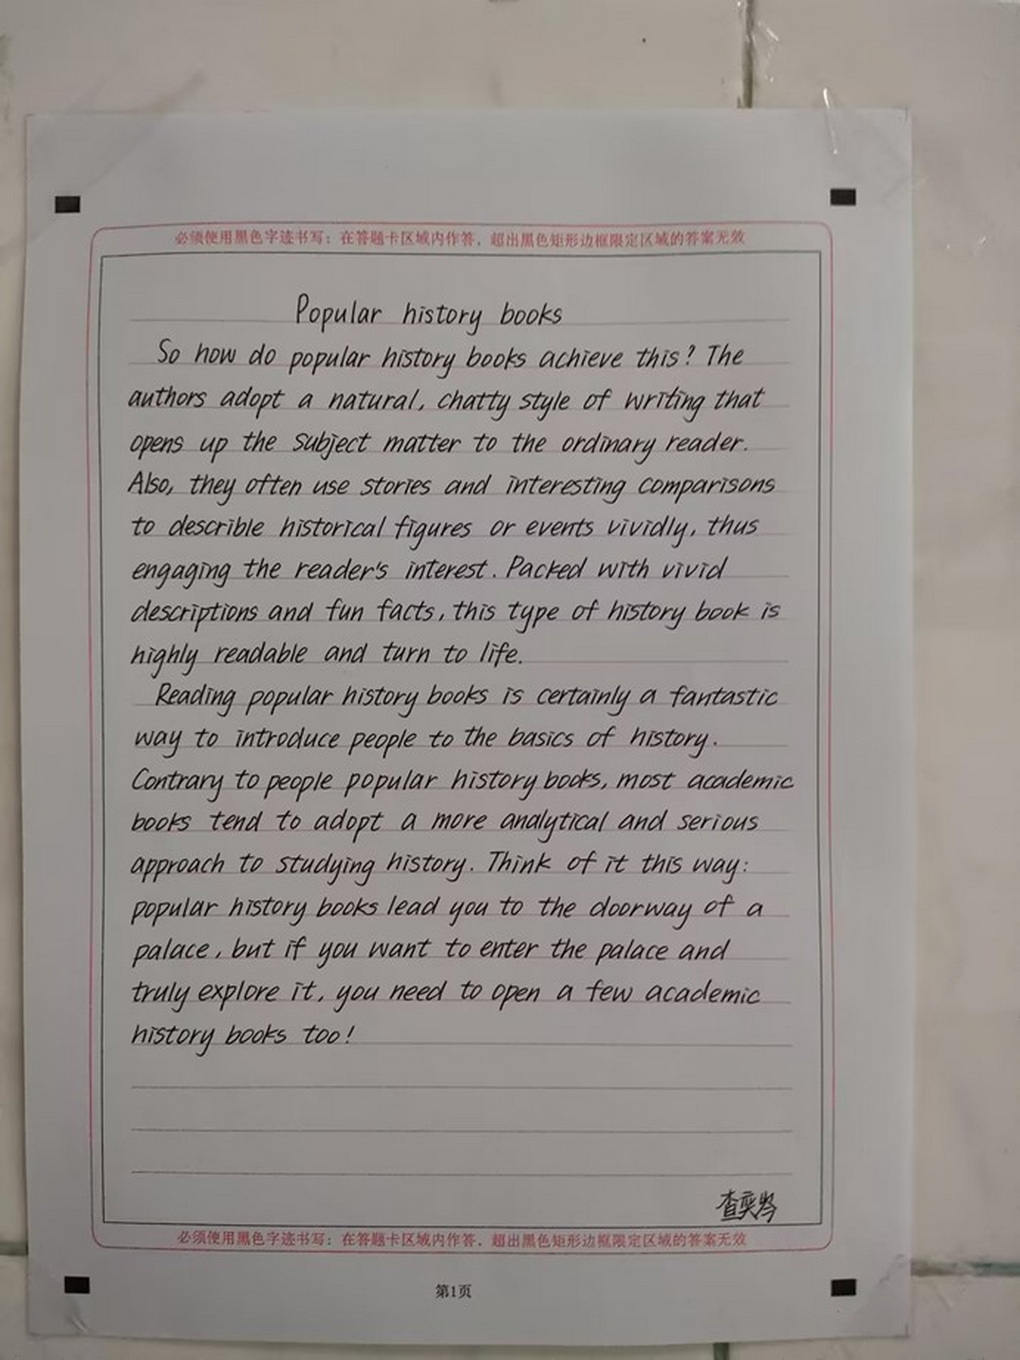 必须使用黑色字迹书写：在答题卡区域内作答，超出黑色矩形边框限定区域的答案无效
Popular history books
So how do popular history books achieve this? The
authors adopt a natural, chatty style of writing that
opens up the subject matter to the ordinary reader.
Also, they often use stories and interesting comparisons
to describle historical figures or events vividly, thus
engaging the reader's interest. Packed with vivid
descriptions and fun facts, this type of history book is
highly readable and turn to life.
Reading popular history books is certainly a fantastic
way to introduce people to the basics of history.
Contrary to people popular history books, most academic
books tend to adopt a more analytical and serious
approach to studying history. Think of it this way:
popular history books lead you to the doorway of a
palace, but if you want to enter the palace and
truly explore it, you need to open a few academic
history books too!
必须使用黑色字迹书写：在答题卡区域内作答，超出黑色矩形边框限定区域的答案无效
第1页